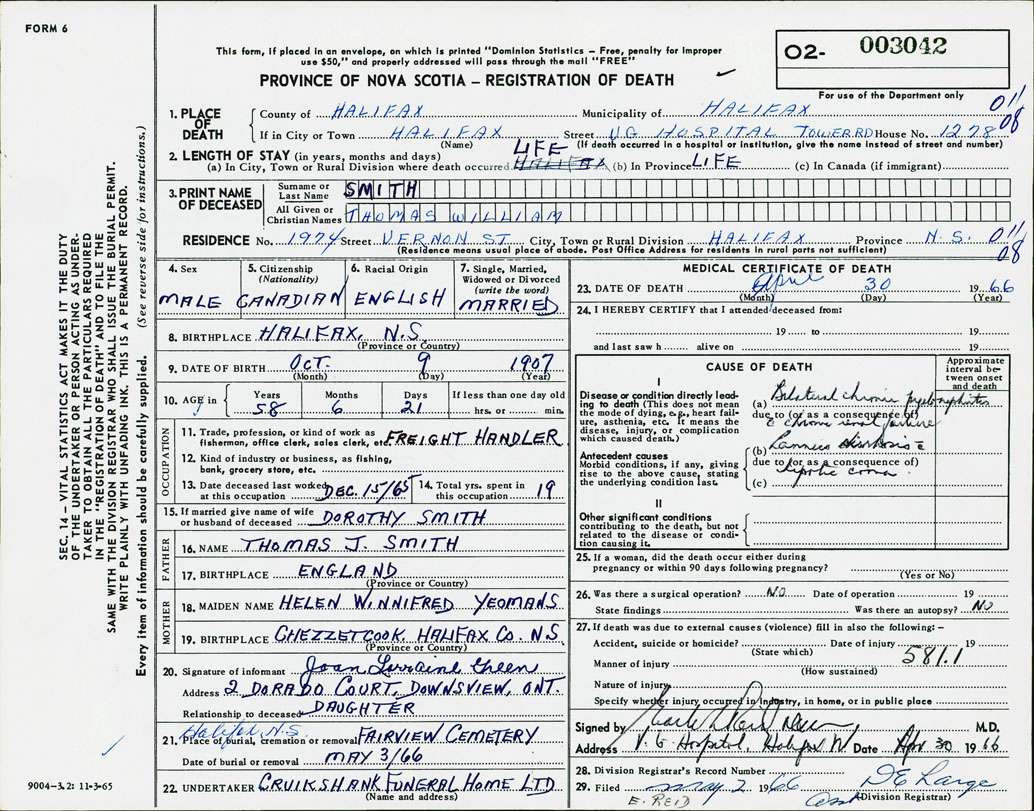 FORM 6
This form, if placed in an envelope, on which is printed "Dominion Statistics – Free, penalty for improper
use $50," and properly addressed will pass through the mail "FREE"
PROVINCE OF NOVA SCOTIA – REGISTRATION OF DEATH
O2- 003042
For use of the Department only
011
08
1. PLACE OF DEATH
County of HALIFAX Municipality of HALIFAX
If in City or Town HALIFAX Street V.G. HOSPITAL TOWER RD House No. 1278
(Name) (If death occurred in a hospital or institution, give the name instead of street and number)
2. LENGTH OF STAY (in years, months and days)
LIFE
(a) In City, Town or Rural Division where death occurred HALIFAX (b) In Province LIFE (c) In Canada (if immigrant)
3. PRINT NAME OF DECEASED
Surname or Last Name SMITH
All Given or Christian Names THOMAS WILLIAM
RESIDENCE No. 1974 Street VERNON ST City, Town or Rural Division HALIFAX Province N.S. 011
(Residence means usual place of abode. Post Office Address for residents in rural parts not sufficient) 08
4. Sex MALE
5. Citizenship (Nationality) CANADIAN
6. Racial Origin ENGLISH
7. Single, Married, Widowed or Divorced (write the word) MARRIED
8. BIRTHPLACE HALIFAX, N.S.
(Province or Country)
9. DATE OF BIRTH OCT. 9 1907
(Month) (Day) (Year)
10. AGE in Years 58 Months 6 Days 21 If less than one day old hrs. or min.
OCCUPATION
11. Trade, profession, or kind of work as
fisherman, office clerk, sales clerk, etc. FREIGHT HANDLER
12. Kind of industry or business, as fishing,
bank, grocery store, etc.
13. Date deceased last worked at this occupation DEC. 15/65
14. Total yrs. spent in this occupation 19
15. If married give name of wife or husband of deceased DOROTHY SMITH
FATHER
16. NAME THOMAS J. SMITH
17. BIRTHPLACE ENGLAND
(Province or Country)
MOTHER
18. MAIDEN NAME HELEN WINNIFRED YEOMANS
19. BIRTHPLACE CHEZZETCOOK HALIFAX CO. N.S.
(Province or Country)
20. Signature of informant Joan Lorraine Green
Address 2 DORADO COURT, DOWNSVIEW, ONT.
Relationship to deceased DAUGHTER
Halifax, N.S.
21. Place of burial, cremation or removal FAIRVIEW CEMETERY
Date of burial or removal MAY 3/66
22. UNDERTAKER CRUIKSHANK FUNERAL HOME LTD
(Name and address)
MEDICAL CERTIFICATE OF DEATH
23. DATE OF DEATH April 30 1966
(Month) (Day) (Year)
24. I HEREBY CERTIFY that I attended deceased from:
19 to 19
and last saw h alive on 19
CAUSE OF DEATH
Approximate interval between onset and death
I
Disease or condition directly leading to death (This does not mean the mode of dying, e.g., heart failure, asthenia, etc. It means the disease, injury, or complication which caused death.)
(a) Bilateral chronic pyelonephritis
due to (or as a consequence of)
c chronic renal failure
Antecedent causes
Morbid conditions, if any, giving rise to the above cause, stating the underlying condition last.
(b) Laennecs cirrhosis c
due to (or as a consequence of)
hepatic coma
(c)
II
Other significant conditions
contributing to the death, but not related to the disease or condition causing it.
25. If a woman, did the death occur either during
pregnancy or within 90 days following pregnancy?
(Yes or No)
26. Was there a surgical operation? NO Date of operation 19
State findings Was there an autopsy? NO
27. If death was due to external causes (violence) fill in also the following: –
Accident, suicide or homicide? Date of injury 19
(State which) 581.1
Manner of injury
(How sustained)
Nature of injury
Specify whether injury occurred in industry, in home, or in public place
Signed by M.D.
Address V. G. Hospital, Halifax N Date Apr. 30 1966
28. Division Registrar's Record Number
29. Filed May 2 1966
E. REID (Division Registrar)
SEC. 14 – VITAL STATISTICS ACT MAKES IT THE DUTY
OF THE UNDERTAKER OR PERSON ACTING AS UNDER-
TAKER TO OBTAIN ALL THE PARTICULARS REQUIRED
IN THE "REGISTRATION OF DEATH" AND TO FILE THE
SAME WITH THE DIVISION REGISTRAR WHO SHALL ISSUE THE BURIAL PERMIT.
WRITE PLAINLY WITH UNFADING INK. THIS IS A PERMANENT RECORD.
Every item of information should be carefully supplied. (See reverse side for instructions.)
9004-3.2: 11-3-65